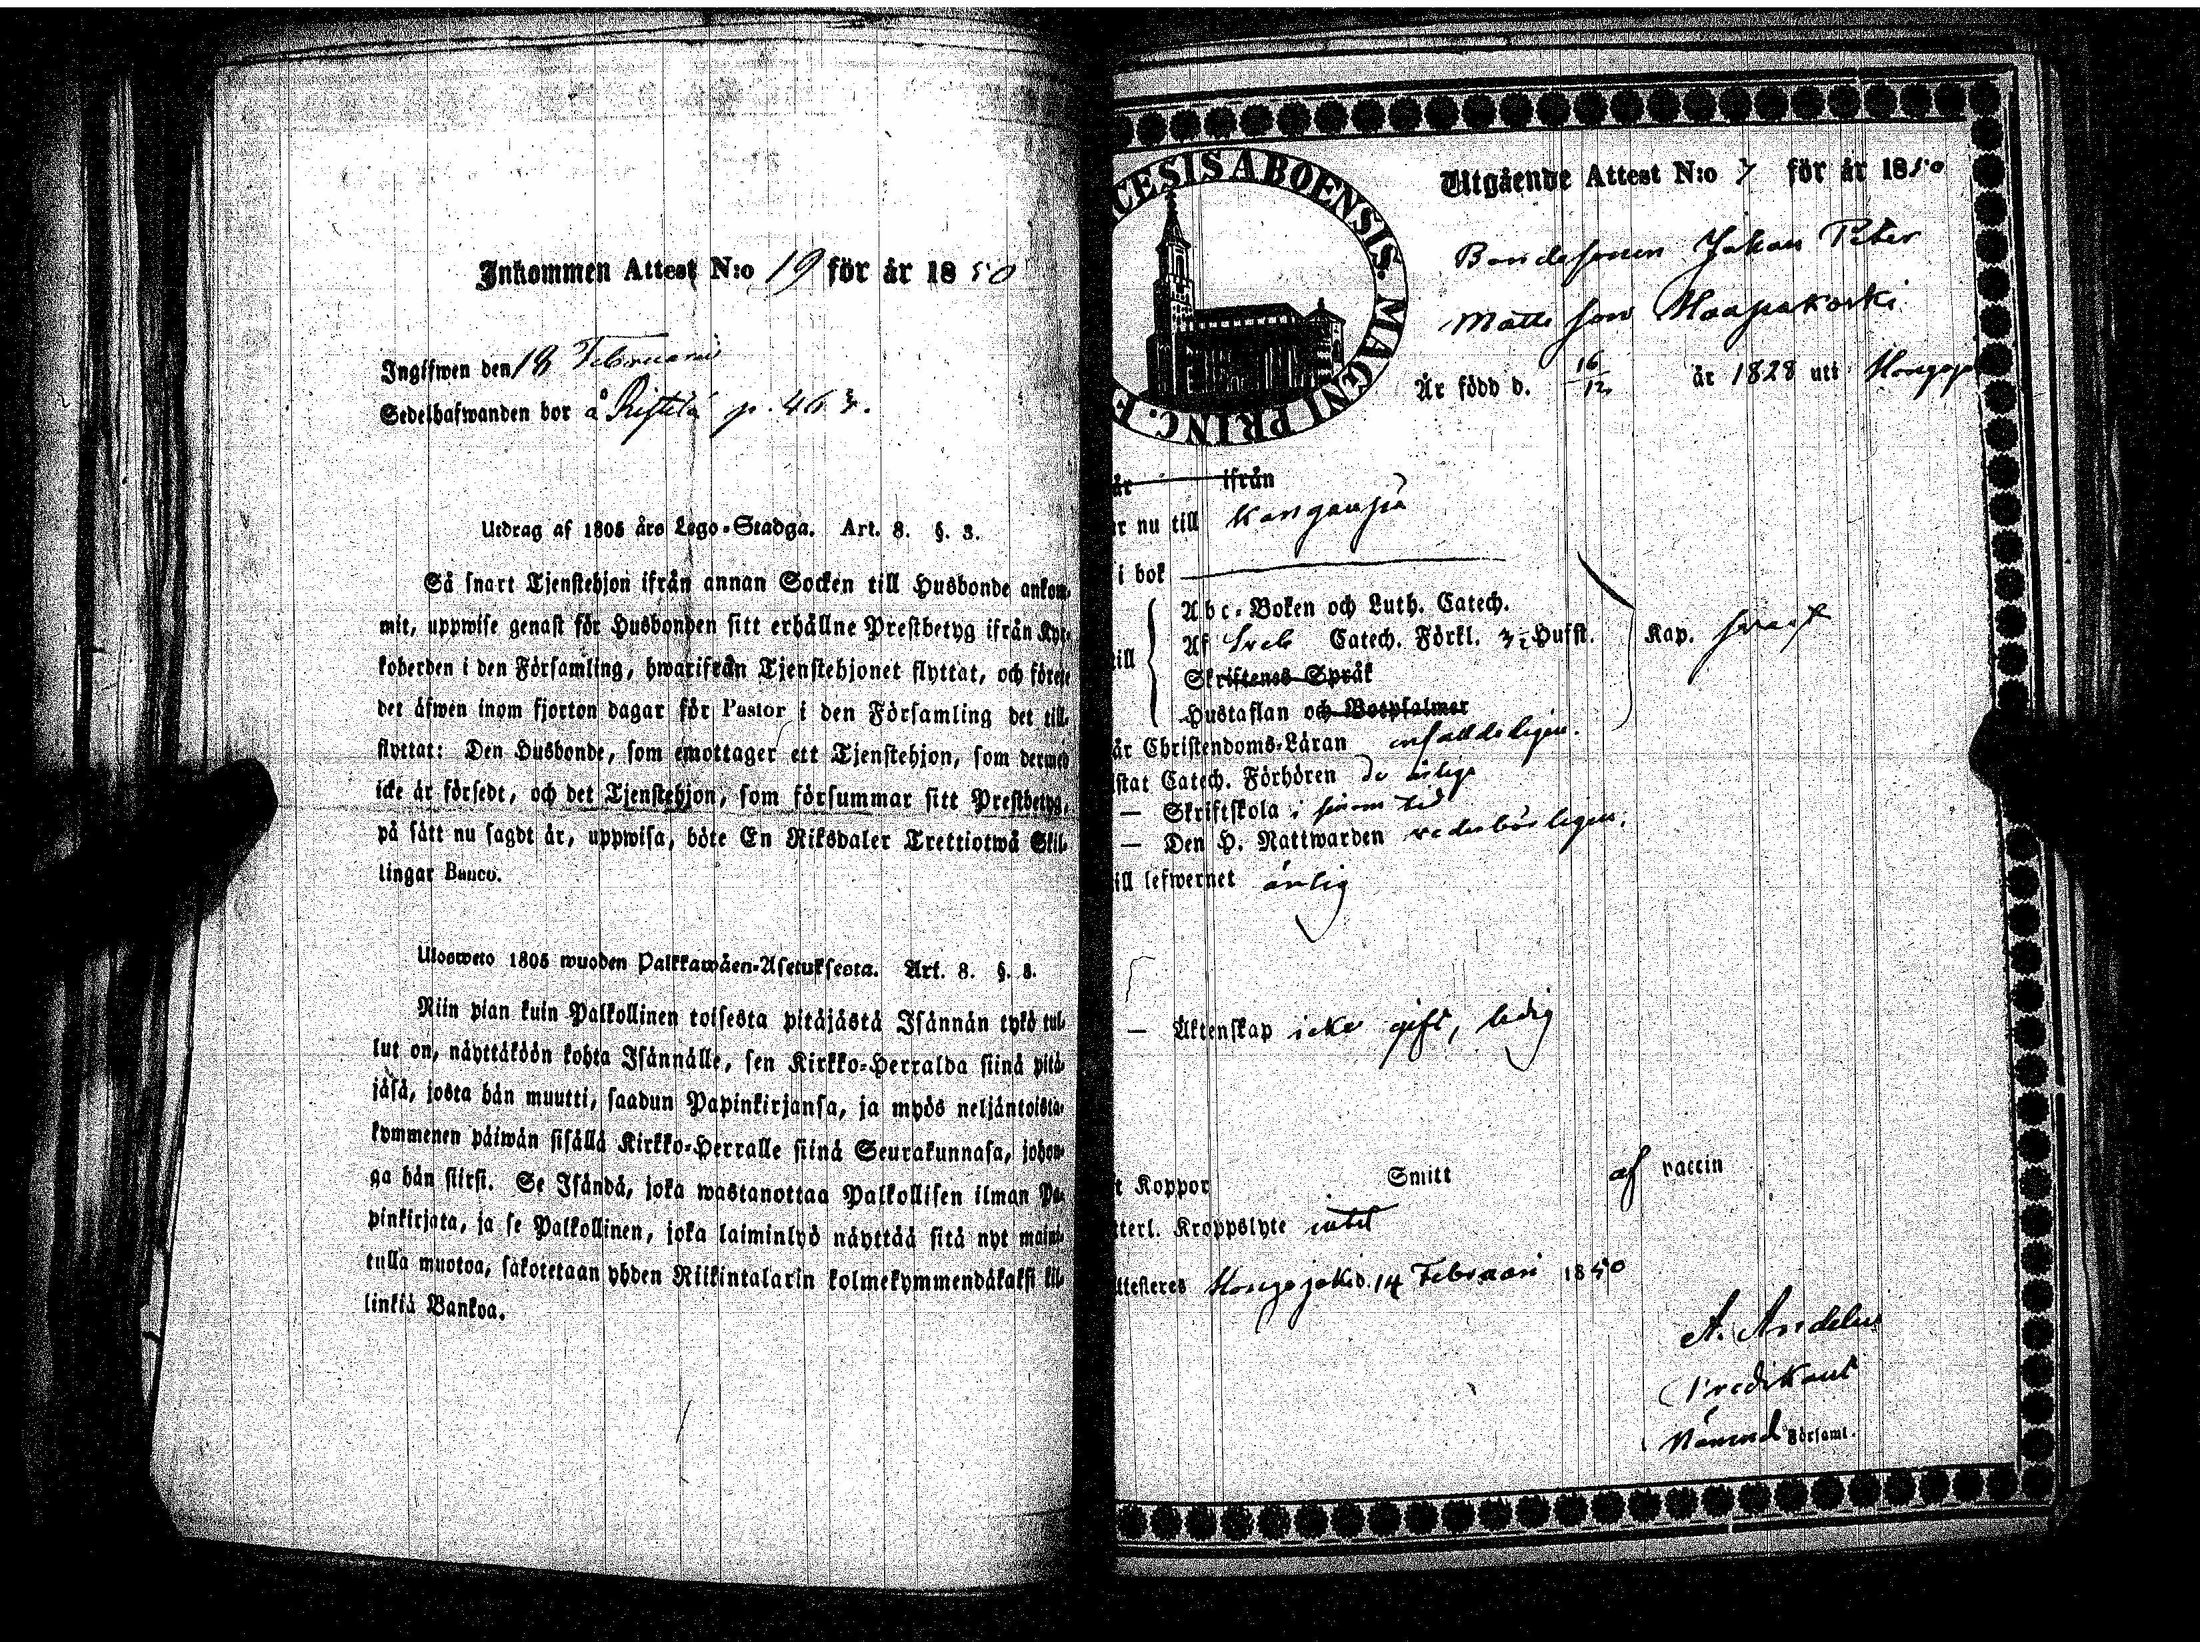 Inkommen Attest N:o 19 för år 1850
Ingifwen den 18 Februarii
Sedelhafwanden bor å Ristilä p. 463.
Utdrag af 1805 års Lego-Stadga. Art. 8. §. 3.
Så snart Tjenstehjon ifrån annan Socken till Husbonde ankom-
mit, uppwise genast för Husbonden sitt erhållne Prestbetyg ifrån Kyr-
koherden i den Församling, hwarifrån Tjenstehjonet flyttat, och förete
det äfwen inom fjorton dagar för Pastor i den Församling det till-
flyttat: Den Husbonde, som emottager ett Tjenstehjon, som dermed
icke är försedt, och det Tjenstehjon, som försummar sitt Prestbetyg,
på sätt nu sagdt är, uppwisa, böte En Riksdaler Trettiotwå Skil-
lingar Banco.
Ulosweto 1805 wuoden Palkkawäen-Asetuksesta. Art. 8. §. 3.
Niin pian kuin Palkollinen toisesta pitäjästä Isännän tykö tul-
lut on, näyttäköön kohta Isännälle, sen Kirkko-Herralda siinä pitä-
jäsä, josta hän muutti, saadun Papinkirjansa, ja myös neljäntoista-
kymmenen päiwän sisällä Kirkko-Herralle siinä Seurakunnasa, johon-
ga hän siirsi. Se Isändä, joka wastanottaa Palkollisen ilman Pa-
pinkirjata, ja se Palkollinen, joka laiminlyö näyttää sitä nyt maini-
tulla muotoa, sakotetaan yhden Riikintalarin kolmekymmendäkaksi kil-
linkiä Bankoa.
CESIS ABOENSIS. MAGNI PRINC. F
Utgående Attest N:o 7 för år 1850
Bondesonen Johan Peter
Matts son Haapakoski
Är född d. 16/12 år 1828 uti Hongojo
är ifrån
r nu till Kanganpä
i bok
Abc-Boken och Luth. Catech.
Af Sveb Catech. Förkl. 3 Hufst.
Kap. svagt
till
Skriftenes Språk
Hustaflan och Botpsalmer
år Christendoms-Läran enfaldeligen.
stat Catech. Förhören de årlige
— Skriftskola i sinom tid
— Den H. Nattwarden vederbörligen.
ill lefwernet ärlig
— Äktenskap icke gift, ledig
t Koppor Smitt af vaccin
tterl. Kroppslyte intet
ttesteres Hongojoki d. 14 Februari 1850
A. Andelin
Predikant
Nämnd Församl.